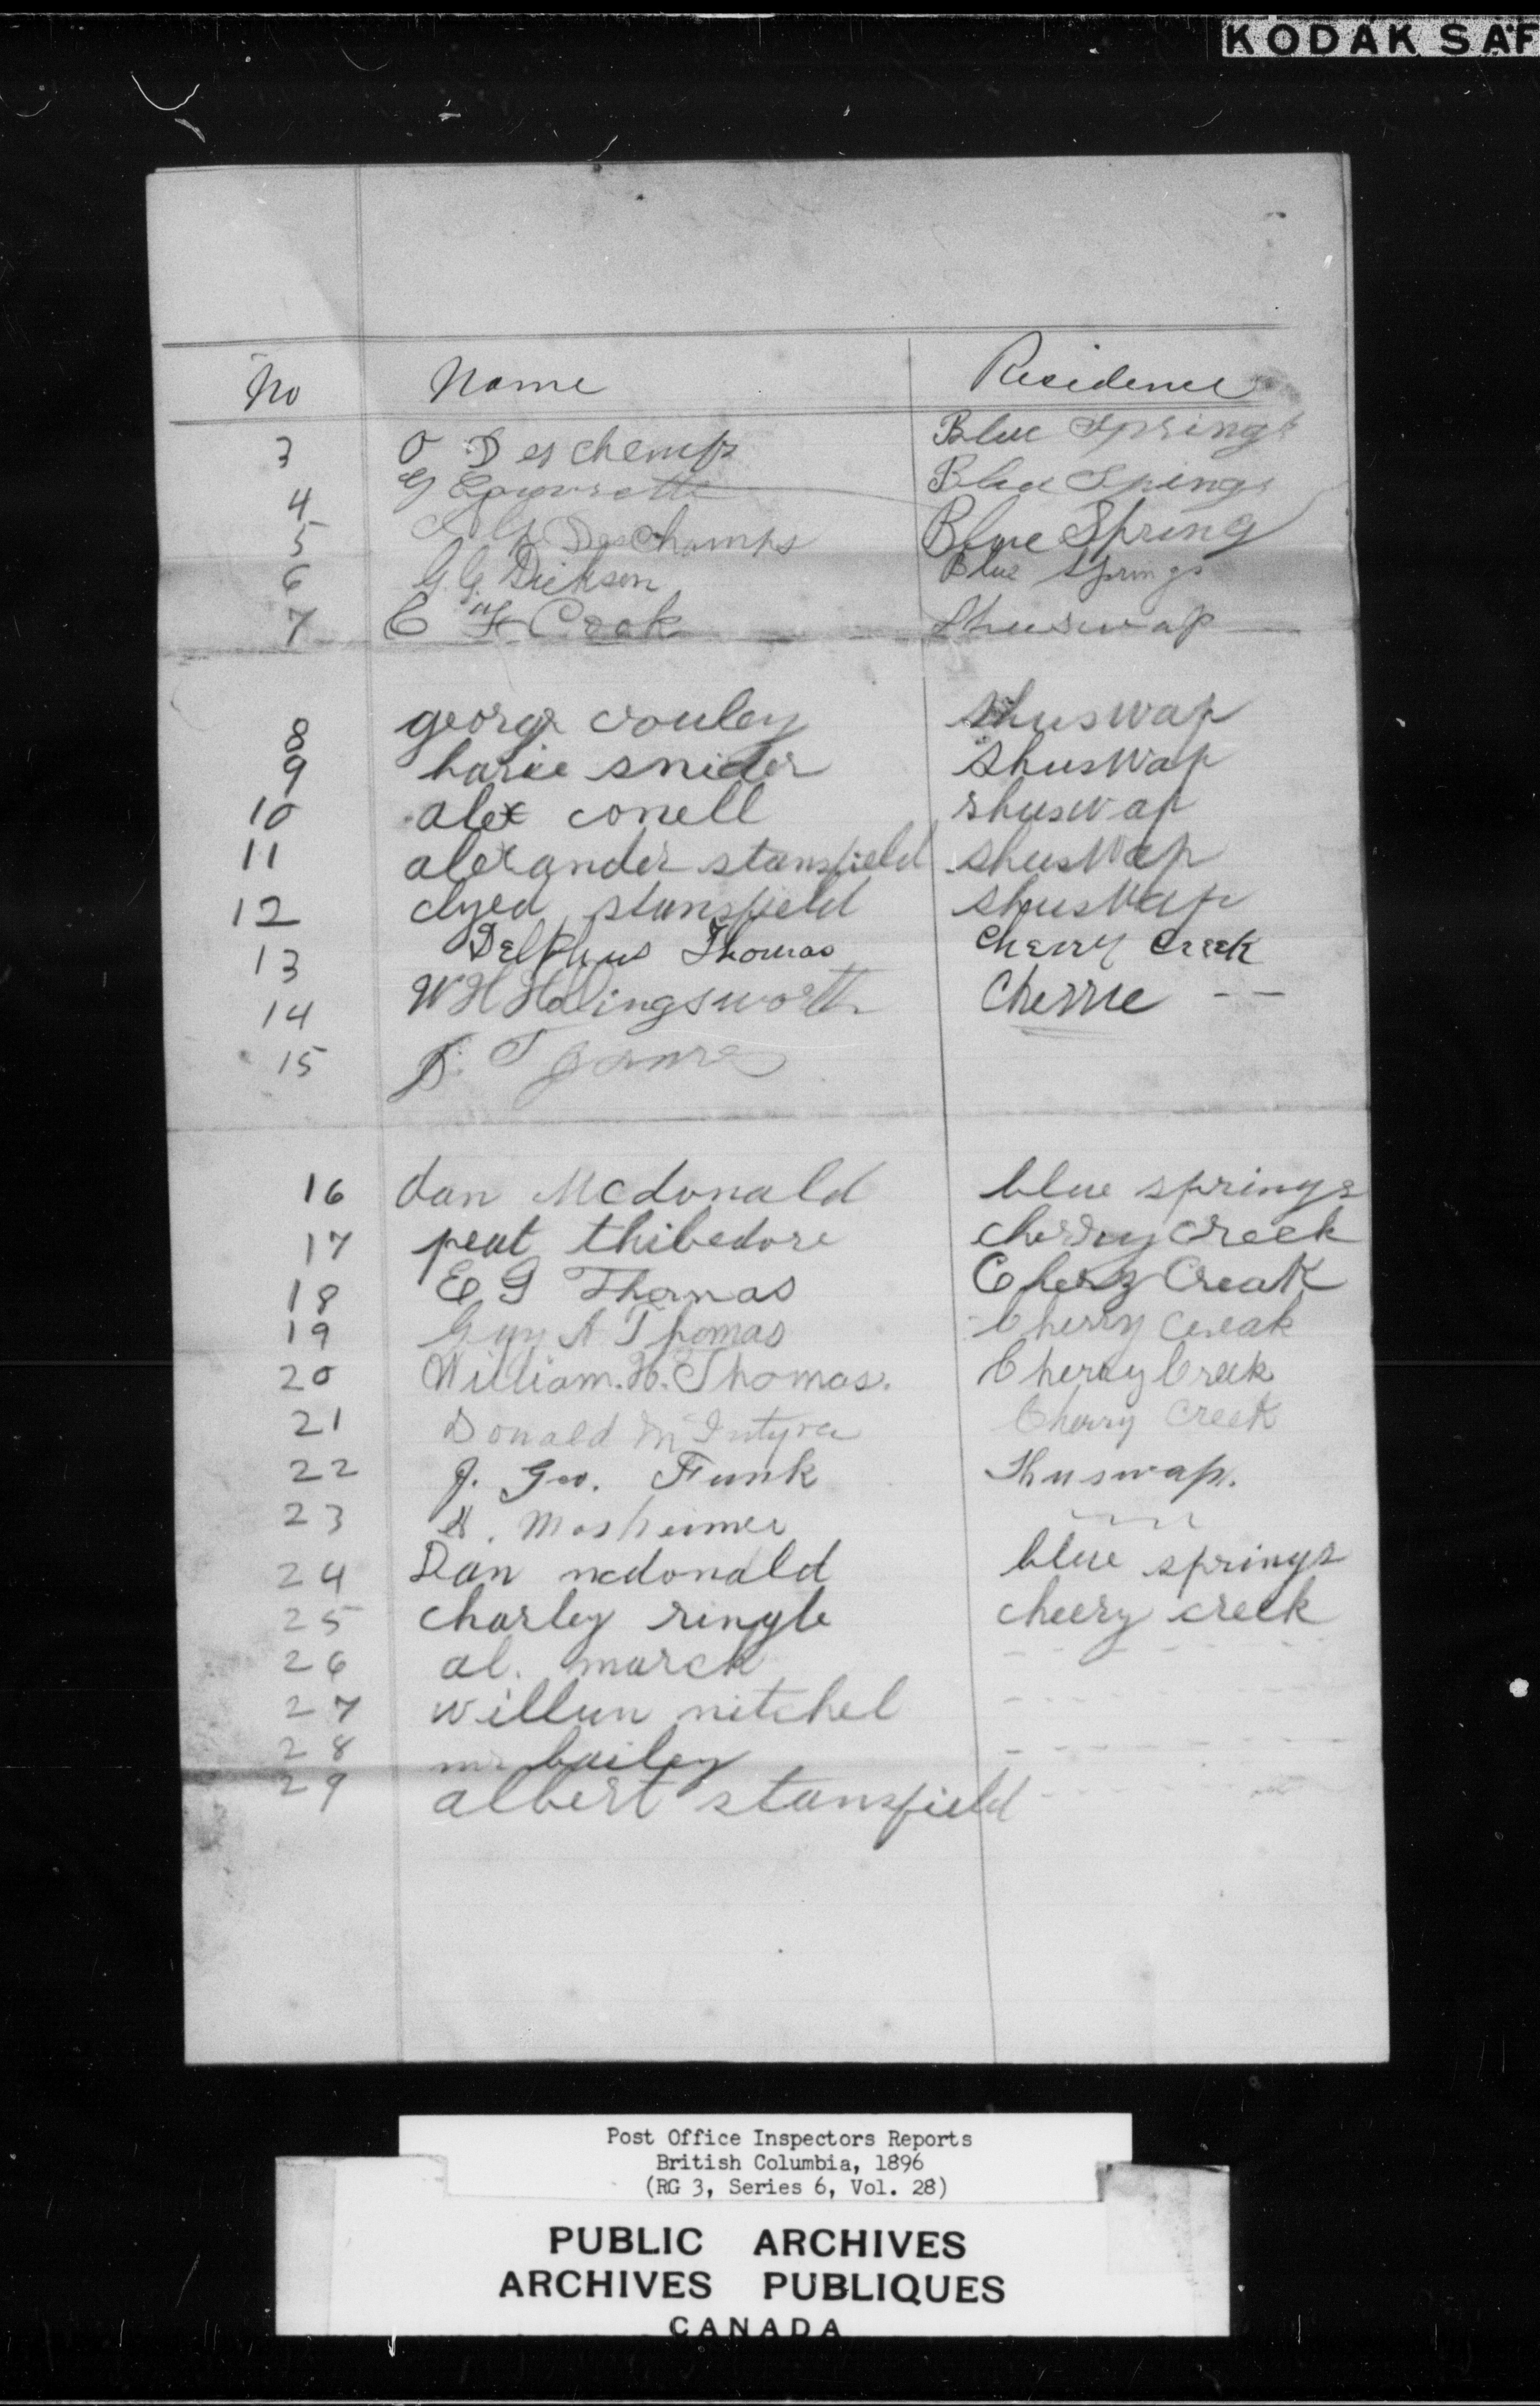 KODAK SAF
No Name Residence
3 O Deschemps Blue Springs
4 G Blue Springs
5 Deschamps Blue Spring
6 G. G. Dickson Blue Springs
7 C H Cook Shuswap
8 george couley shuswap
9 harie snider shuswap
10 alex conell shuswap
11 alexander stansfield shuswap
12 clyed stansfield shuswap
13 Delphus Thomas Cherry Creek
14 W H Hollingsworth Cherrie - -
15 J. T
16 dan Mcdonald blue springs
17 peat thibedore cherry creek
18 E G Thomas Chery Creak
19 Guy A Thomas Cherry Creak
20 William. H. Thomas. Cherry Creek
21 Donald McIntyre Cherry Creek
22 J. Geo. Funk Shuswap.
23 Mosheimer
24 Dan mcdonald blue springs
25 charley ringle cheery creek
26 al. marck - - - -
27 willun mitchel - - - -
28 mr bailey - - - -
29 albert stansfield - - - -
Post Office Inspectors Reports
British Columbia, 1896
(RG 3, Series 6, Vol. 28)
PUBLIC ARCHIVES
ARCHIVES PUBLIQUES
CANADA